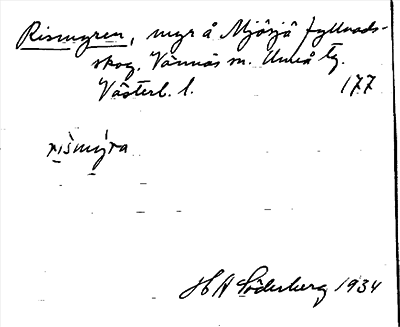 Rismyren, myr å Mjösjö fyllnads-
skog. Vännäs sn. Umeå tg.
Västerb. l. 177
rismyra
H A Söderberg 1934